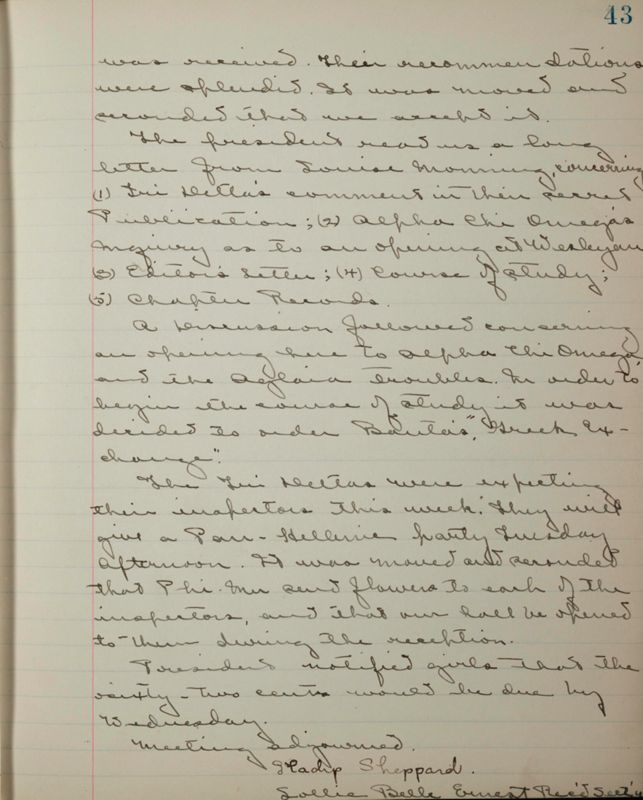 43
was received. Their recommendations
were splendid. It was moved and
seconded that we accept it.
The president read us a long
letter from Louise Monning, concerning
(1) Tri Delta's comment in their secret
Publication; (2) Alpha Chi Omega's
inquiry as to an opening at Wesleyan
(3) Editor's Letter; (4) Course of study;
(5) Chapter Records.
A discussion followed concerning
an opening here to Alpha Chi Omega,
and the Aglaia troubles. In order to
begin the course of study it was
decided to order Banta's, "Greek Ex-
change".
The Tri Deltas were expecting
their inspectors this week. They will
give a Pan-Hellenic party Tuesday
afternoon. It was moved and seconded
that Phi Mu send flowers to each of the
inspectors, and that our hall be opened
to them during the reception.
President notified girls that the
sixty-two cents would be due by
Wednesday.
Meeting adjourned.
Sheppard.
Sollie Belle Ernest